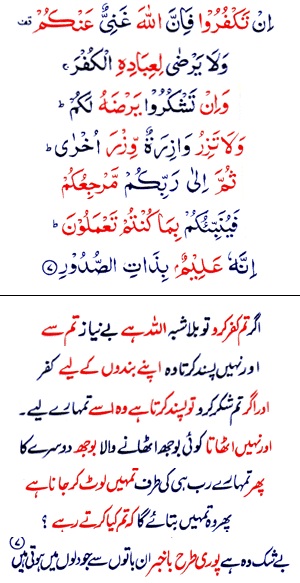 اِنْ تَكْفُرُوْا فَاِنَّ اللّٰهَ غَنِیٌّ عَنْكُمْ قف
وَلَا یَرْضٰی لِعِبَادِهِ الْكُفْرَ ۚ
وَاِنْ تَشْكُرُوْا یَرْضَهُ لَكُمْ ؕ
وَلَا تَزِرُ وَازِرَةٌ وِّزْرَ اُخْرٰی ؕ
ثُمَّ اِلٰی رَبِّكُمْ مَّرْجِعُكُمْ
فَیُنَبِّئُكُمْ بِمَا كُنْتُمْ تَعْمَلُوْنَ ؕ
اِنَّهٗ عَلِیْمٌۢ بِذَاتِ الصُّدُوْرِ ﴿۷﴾
اگر تم کفر کرو تو بلا شبہ اللہ ہے بے نیاز تم سے
اور نہیں پسند کرتا وہ اپنے بندوں کے لیے کفر
اور اگر تم شکر کرو تو پسند کرتا ہے وہ اسے تمہارے لیے۔
اور نہیں اٹھاتا کوئی بوجھ اٹھانے والا بوجھ دوسرے کا
پھر تمہارے رب ہی کی طرف تمہیں لوٹ کر جانا ہے
پھر وہ تمہیں بتائے گا کہ تم کیا کرتے رہے ؟
بے شک وہ ہے پوری طرح باخبر ان باتوں سے جو دلوں میں ہوتی ہیں ﴿۷﴾